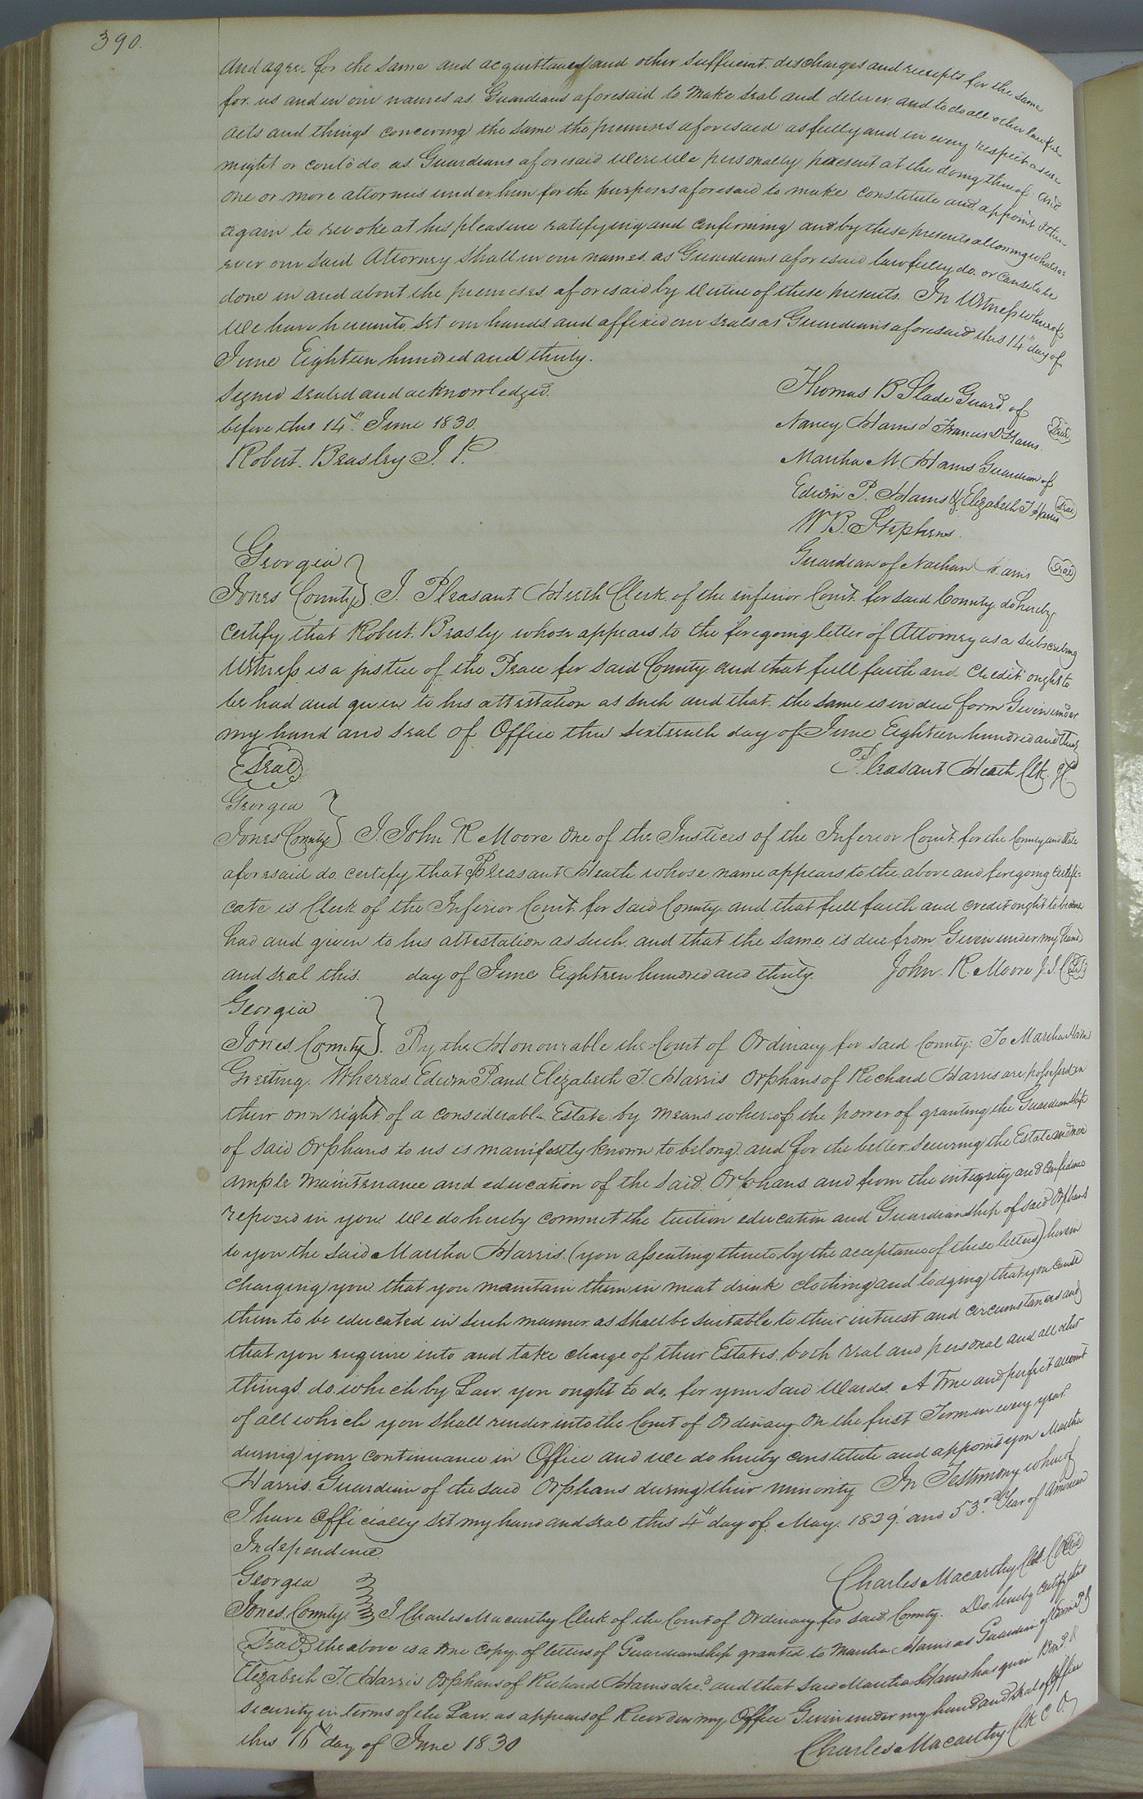 390.
and agree for the same and acquittances and other sufficient discharges and receipts for the same
for us and in our names as Guardians aforesaid to make seal and deliver and to do all other lawful
acts and things concering the same the premises aforesaid as fully and in every respect as we
might or could do as Guardians aforesaid were we personally present at the doing thereof and
one or more attorneis under him for the purposes aforesaid to make constitute and appoint & then
again to revoke at his pleasure ratifying and confirming and by these presents allowing whatso
ever our said Attorney shall in our names as Guardians aforesaid lawfully do or cause to be
done in and about the premises aforesaid by virtue of these presents. In Witness whereof
We have hereunto set our hands and affixed our seals as Guardians aforesaid this 14th day of
June Eighteen hundred and thirty.
Signed sealed and acknowledged
before this 14th June 1830.
Robert. Beasley J. P.
Thomas B Slade Guard of
Nancy Harris & Francis D Harris (Seal)
Martha M. Harris Guardian of
Edwin P. Harris & Elizabeth T Harris (Seal)
W B. Stephens
Guardian of Nathan Harris (Seal)
Georgia
Jones County} I. Pleasant Heath Clerk of the inferior Court for said County do hereby
certify that Robert. Beasly whose appears to the foregoing letter of Attorney as a subscribing
Witness is a justice of the Peace for said County and that full faith and credit ought to
be had and given to his attestation as such and that the same is in due form Given under
my hand and seal of Office this sixteenth day of June Eighteen hundred and thirty
(Seal) Pleasant Heath Clk. J.C.
Georgia
Jones County} I. John R Moore One of the Justices of the Inferior Court for the County and State
aforesaid do certify that Pleasant Heath whose name appears to the above and foregoing certifi-
cate is Clerk of the Inferior Court for said County and that full faith and credit ought to be
had and given to his attestation as such and that the same is due from Given under my hand
and seal this. day of June Eighteen hundred and thirty. John. R Moore J.I.C. (Seal)
Georgia
Jones County}. By the Honourable the Court of Ordinary for said County: To Martha Harris
Greeting. Whereas Edwin P and Elizabeth T Harris Orphans of Richard Harris are possessed in
their own right of a considerable Estate by means whereof the power of granting the Guardianship
of said Orphans to us is manifestly known to belong and for the better securing the Estate and more
ample maintenance and education of the said Orphans and from the integrity and confidence
reposed in you we do hereby commit the tuition education and Guardianship of said Orphans
to you the said Martha Harris (you assenting thereto by the acceptance of these letters) herein
charging you that you maintain them in meat drink clothing and lodging that you cause
them to be educated in such manner as shall be suitable to their interest and circumstances and
that you enquire into and take charge of their Estates both real and personal and all other
things do which by Law you ought to do for your said Wards. A true and perfect account
of all which you shall render into the Court of Ordinary On the first Term in every year
during your continuance in Office and we do hereby constitute and appoint you Martha
Harris Guardian of the said Orphans during their minority In Testimony whereof
I have officially set my hand and seal this 4th day of May. 1829. and 53rd Year of American
Independence
Charles Macarthy Clk. C.O. (Seal)
Georgia
Jones County} I Charles Macarthy Clerk of the Court of Ordinary for said County. Do hereby certify that
(Seal) the above is a true copy of letters of Guardianship granted to Martha Harris as Guardian of Edwin P &
Elizabeth T. Harris Orphans of Richard Harris decd. and that said Martha Harris has given Bond &
security in terms of the Law as appears of Record in my Office Given under my hand and seal of Office
this 16th day of June 1830
Charles Macarthy Clk C O.